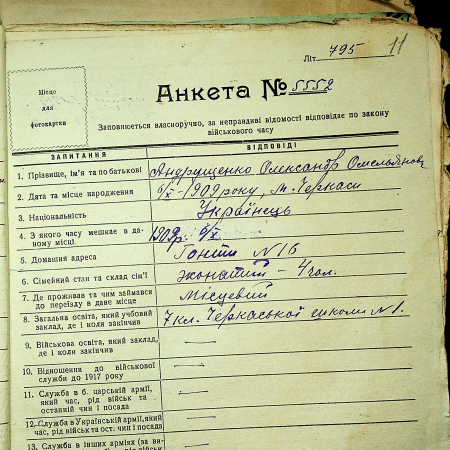 Літ. 795 11
Місце
для
фотокартки
Анкета № 5552
Заповнюється власноручно, за неправдиві відомості відповідає по закону
військового часу
ЗАПИТАННЯ ВІДПОВІДІ
1. Прізвище, ім'я та по батькові Андрущенко Олександр Омельянов
2. Дата та місце народження 6/X-1909 року, м. Черкаси
3. Національність Українець
4. З якого часу мешкає в да-
ному місці. 1909р. 6/X
5. Домашня адреса Гоголя N 16
6. Сімейний стан та склад сім'ї жонатий - 4 чол.
7. Де проживав та чим займався
до переїзду в дане місце Місцевий
8. Загальна освіта, який учбовий
заклад, де і коли закінчив 7 кл. Черкаської школи N 1.
9. Військова освіта, який заклад,
де і коли закінчив —
10. Відношення до військової
служби до 1917 року —
11. Служба в б. царській армії,
який час, рід військ та
останній чин і посада —
12. Служба в Українській армії, який
час, рід військ та ост. чин і посада —
13. Служба в інших арміях (за ви-